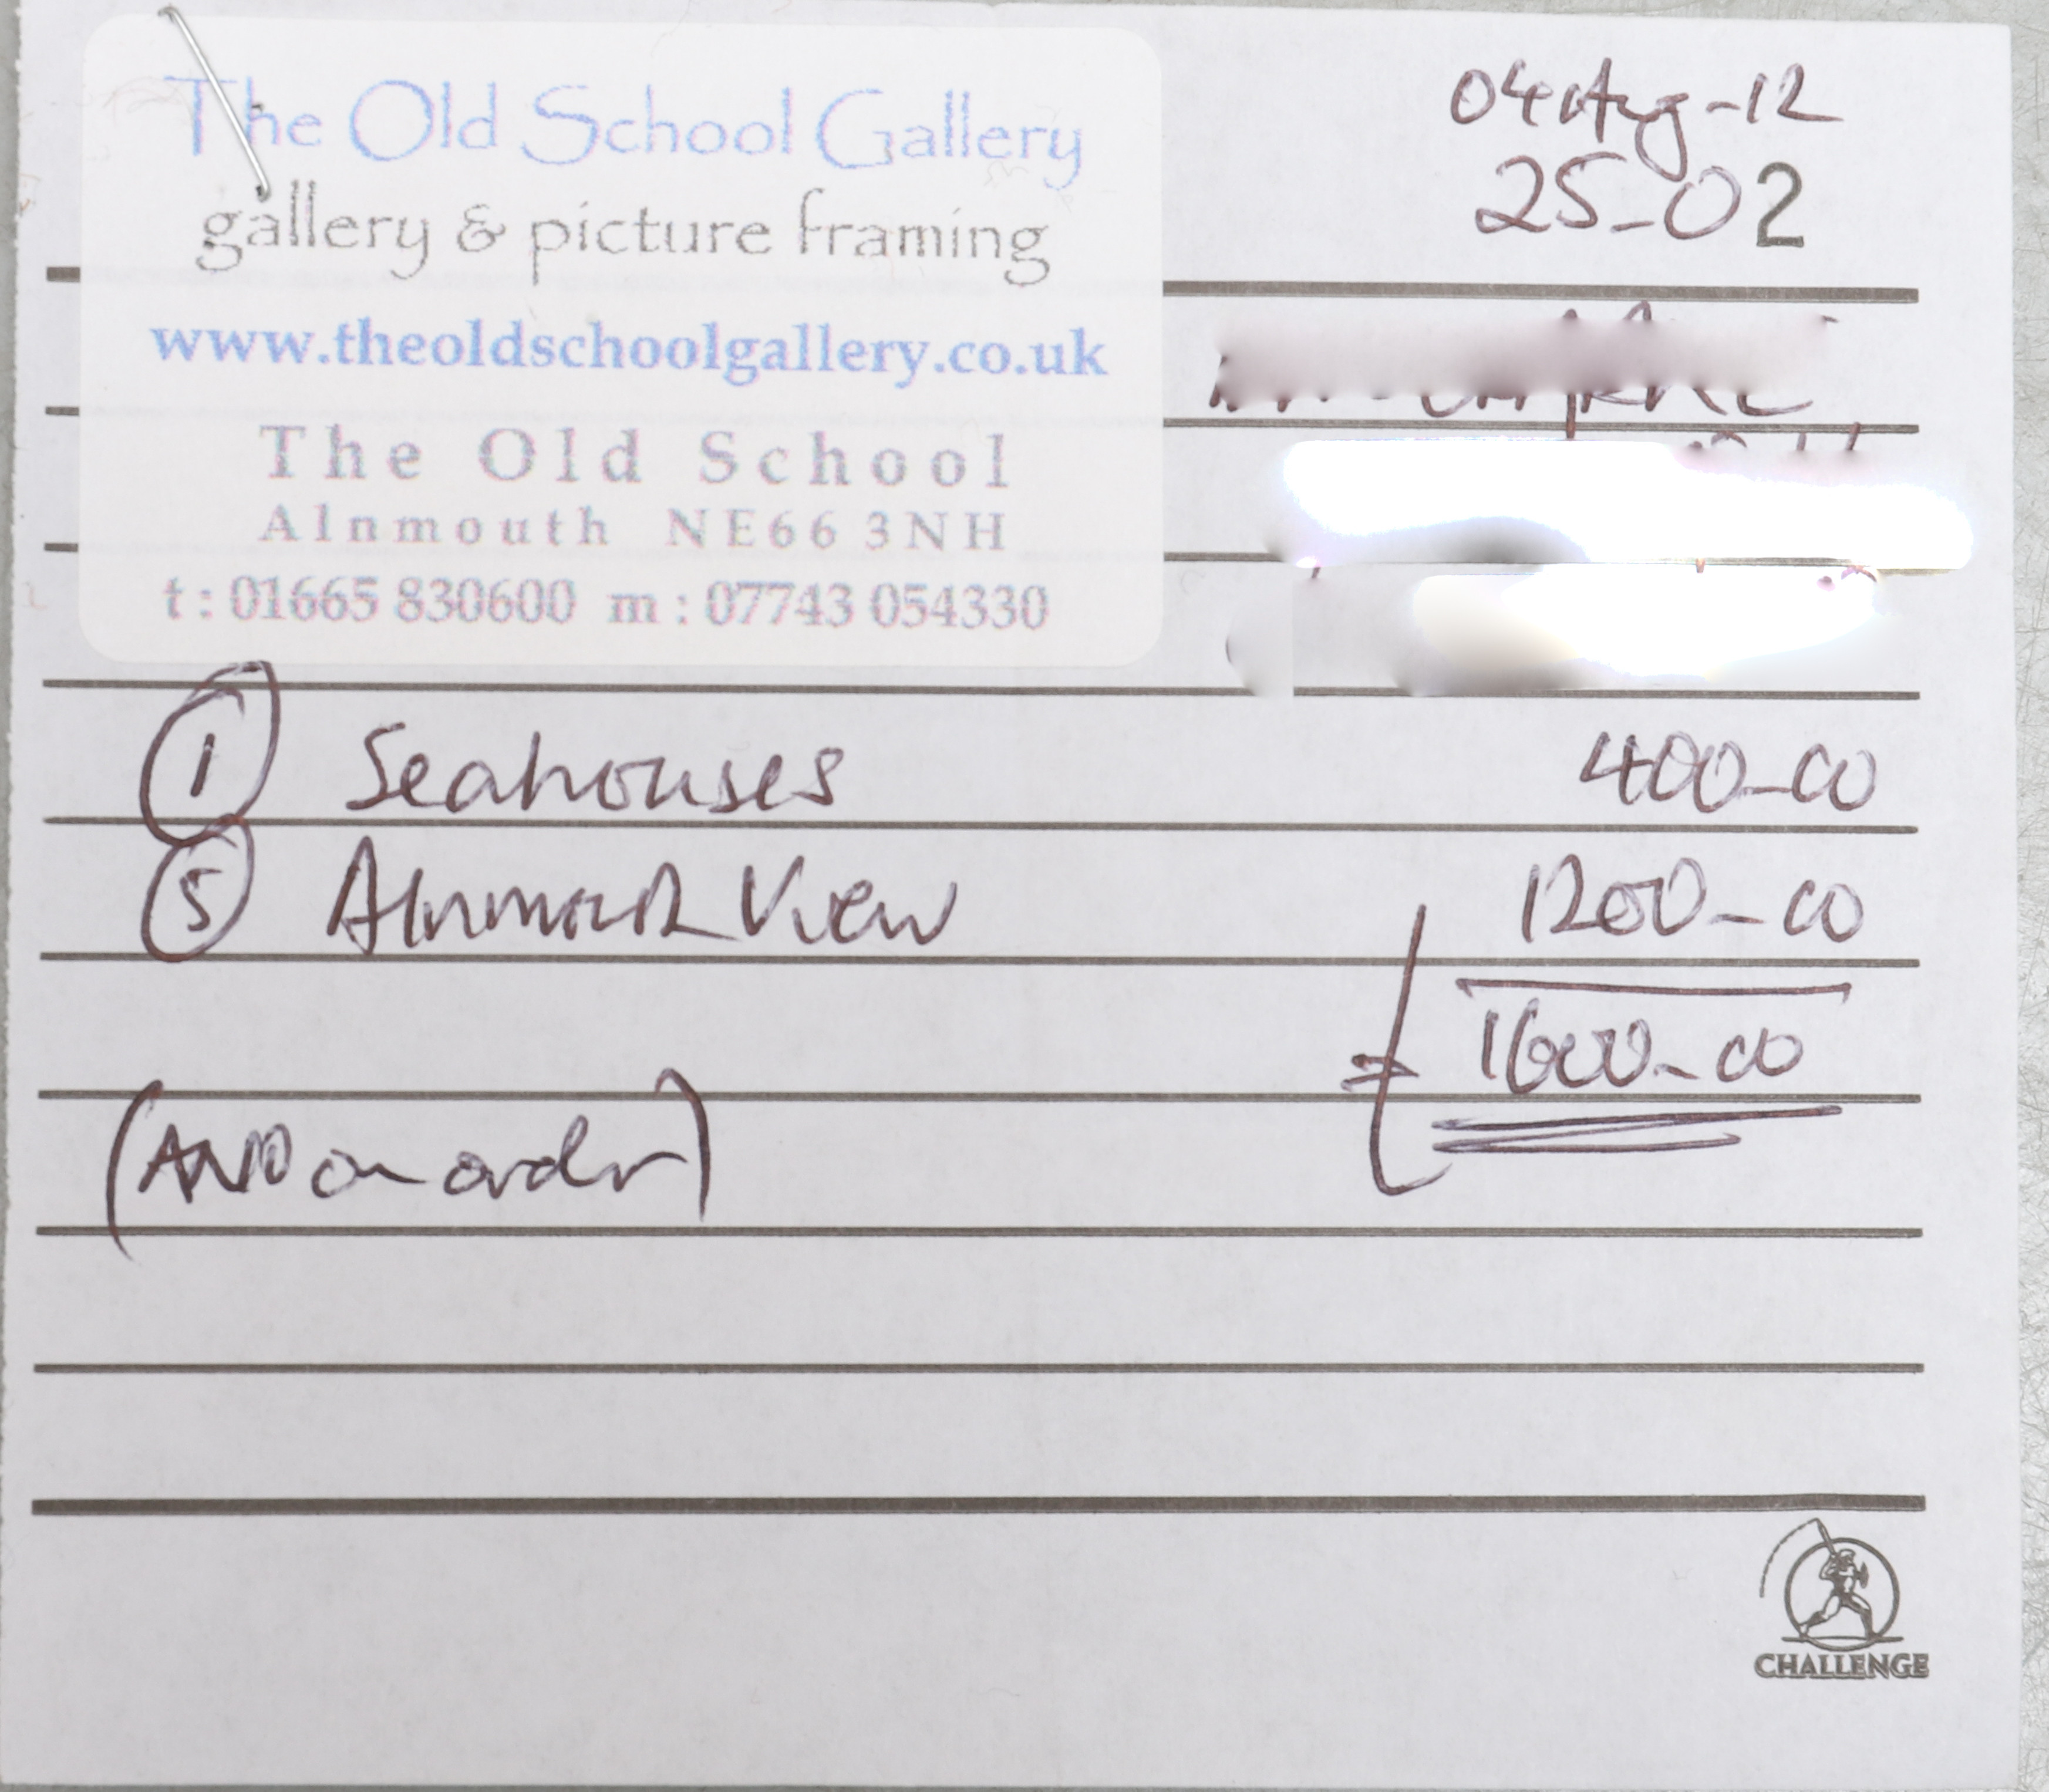 The Old School Gallery
gallery & picture framing
www.theoldschoolgallery.co.uk
The Old School
Alnmouth NE66 3NH
t : 01665 830600 m : 07743 054330
04 Aug-12
25-02
1 Seahouses 400-00
5 Alnmouth View 1200-00
= 1600-00
( on order)
CHALLENGE